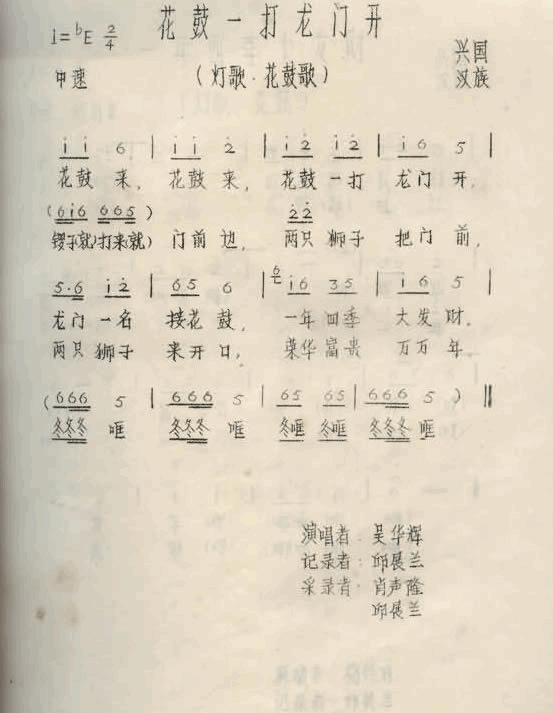 花鼓一打龙门开
1=ᵇE 2/4
(灯歌·花鼓歌)
兴国
中速
汉族
i i 6 | i i 2 | i 2 i 2 | i 6 5 |
花鼓 来, 花鼓 来, 花鼓 一打 龙门 开,
(6 i 6 6 6 5)
2 2
锣子就)打来(就) 门前 边, 两只 狮子 把门 前,
5·6 i 2 | 6 5 6 | 6 i 6 3 5 | i 6 5 |
龙门 一名 接花 鼓, 一年 四季 大发 财.
两只 狮子 来开 口, 荣华 富贵 万万 年
(6 6 6 5 | 6 6 6 5 | 6 5 6 5 | 6 6 6 5 ) ‖
冬冬冬 哐 冬冬冬 哐 冬哐 冬哐 冬冬冬 哐
演唱者: 吴华辉
记录者: 邱展兰
采录者: 肖声隆
邱展兰